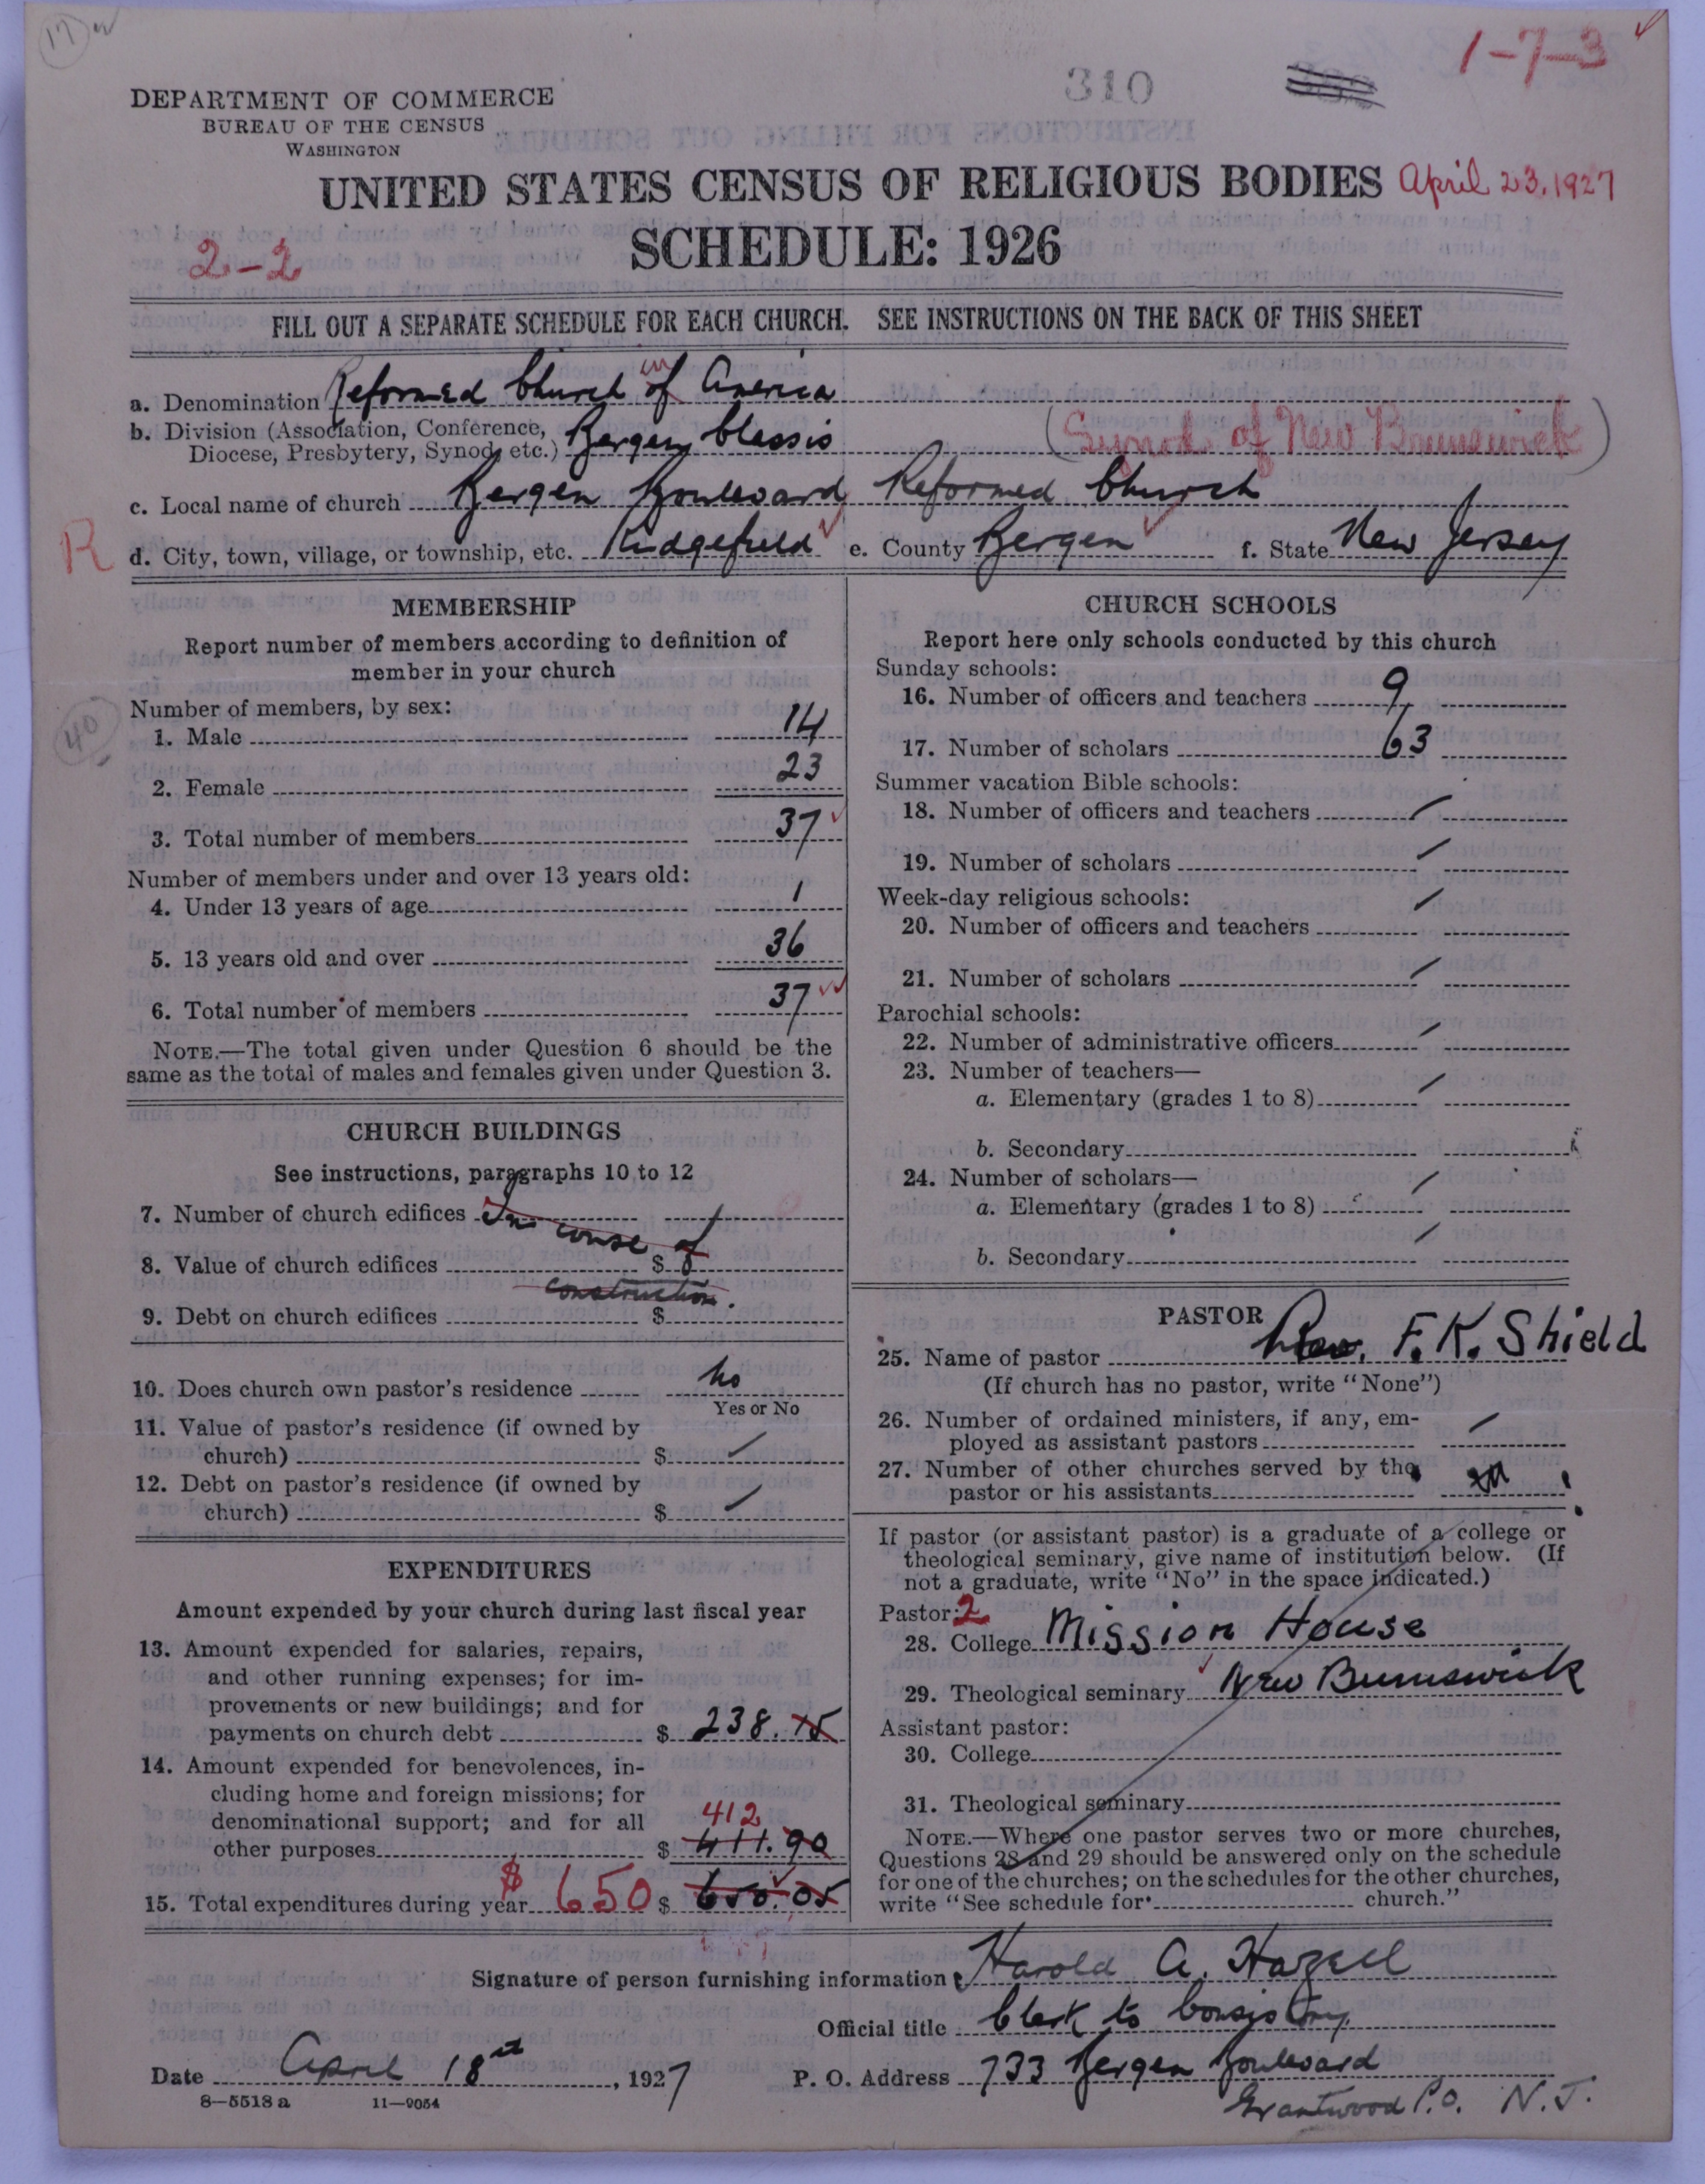 17
1-7-3
310
DEPARTMENT OF COMMERCE
BUREAU OF THE CENSUS
WASHINGTON
UNITED STATES CENSUS OF RELIGIOUS BODIES April 23, 1927
SCHEDULE: 1926
2-2
FILL OUT A SEPARATE SCHEDULE FOR EACH CHURCH. SEE INSTRUCTIONS ON THE BACK OF THIS SHEET
a. Denomination Reformed Church of in America
b. Division (Association, Conference, Diocese, Presbytery, Synod, etc.) Bergen Classis (Synod of New Brunswick)
c. Local name of church Bergen Boulevard Reformed Church
R
d. City, town, village, or township, etc. Ridgefield e. County Bergen f. State New Jersey
MEMBERSHIP
Report number of members according to definition of
member in your church
Number of members, by sex:
40
1. Male 14
2. Female 23
3. Total number of members 37
Number of members under and over 13 years old:
4. Under 13 years of age 1
5. 13 years old and over 36
6. Total number of members 37
NOTE.—The total given under Question 6 should be the
same as the total of males and females given under Question 3.
CHURCH BUILDINGS
See instructions, paragraphs 10 to 12
7. Number of church edifices In
course of
8. Value of church edifices $
construction.
9. Debt on church edifices $
10. Does church own pastor's residence No
Yes or No
11. Value of pastor's residence (if owned by
church) $
12. Debt on pastor's residence (if owned by
church) $
EXPENDITURES
Amount expended by your church during last fiscal year
13. Amount expended for salaries, repairs,
and other running expenses; for im-
provements or new buildings; and for
payments on church debt $ 238.15
14. Amount expended for benevolences, in-
cluding home and foreign missions; for
denominational support; and for all 412
other purposes $ 411.90
15. Total expenditures during year $ 650 $ 650.05
CHURCH SCHOOLS
Report here only schools conducted by this church
Sunday schools:
16. Number of officers and teachers 9
17. Number of scholars 63
Summer vacation Bible schools:
18. Number of officers and teachers
19. Number of scholars
Week-day religious schools:
20. Number of officers and teachers
21. Number of scholars
Parochial schools:
22. Number of administrative officers
23. Number of teachers—
a. Elementary (grades 1 to 8)
b. Secondary
24. Number of scholars—
a. Elementary (grades 1 to 8)
b. Secondary
PASTOR
25. Name of pastor Rev. F. K. Shield
(If church has no pastor, write "None")
26. Number of ordained ministers, if any, em-
ployed as assistant pastors
27. Number of other churches served by the
pastor or his assistants
If pastor (or assistant pastor) is a graduate of a college or
theological seminary, give name of institution below. (If
not a graduate, write "No" in the space indicated.)
Pastor: 2
28. College Mission House
29. Theological seminary New Brunswick
Assistant pastor:
30. College
31. Theological seminary
NOTE.—Where one pastor serves two or more churches,
Questions 28 and 29 should be answered only on the schedule
for one of the churches; on the schedules for the other churches,
write "See schedule for church."
Signature of person furnishing information Harold A. Hazell
Official title Clerk to Consistory
Date April 18th, 1927 P. O. Address 733 Bergen Boulevard
8-5518 a 11-9054 Grantwood P.O. N.J.